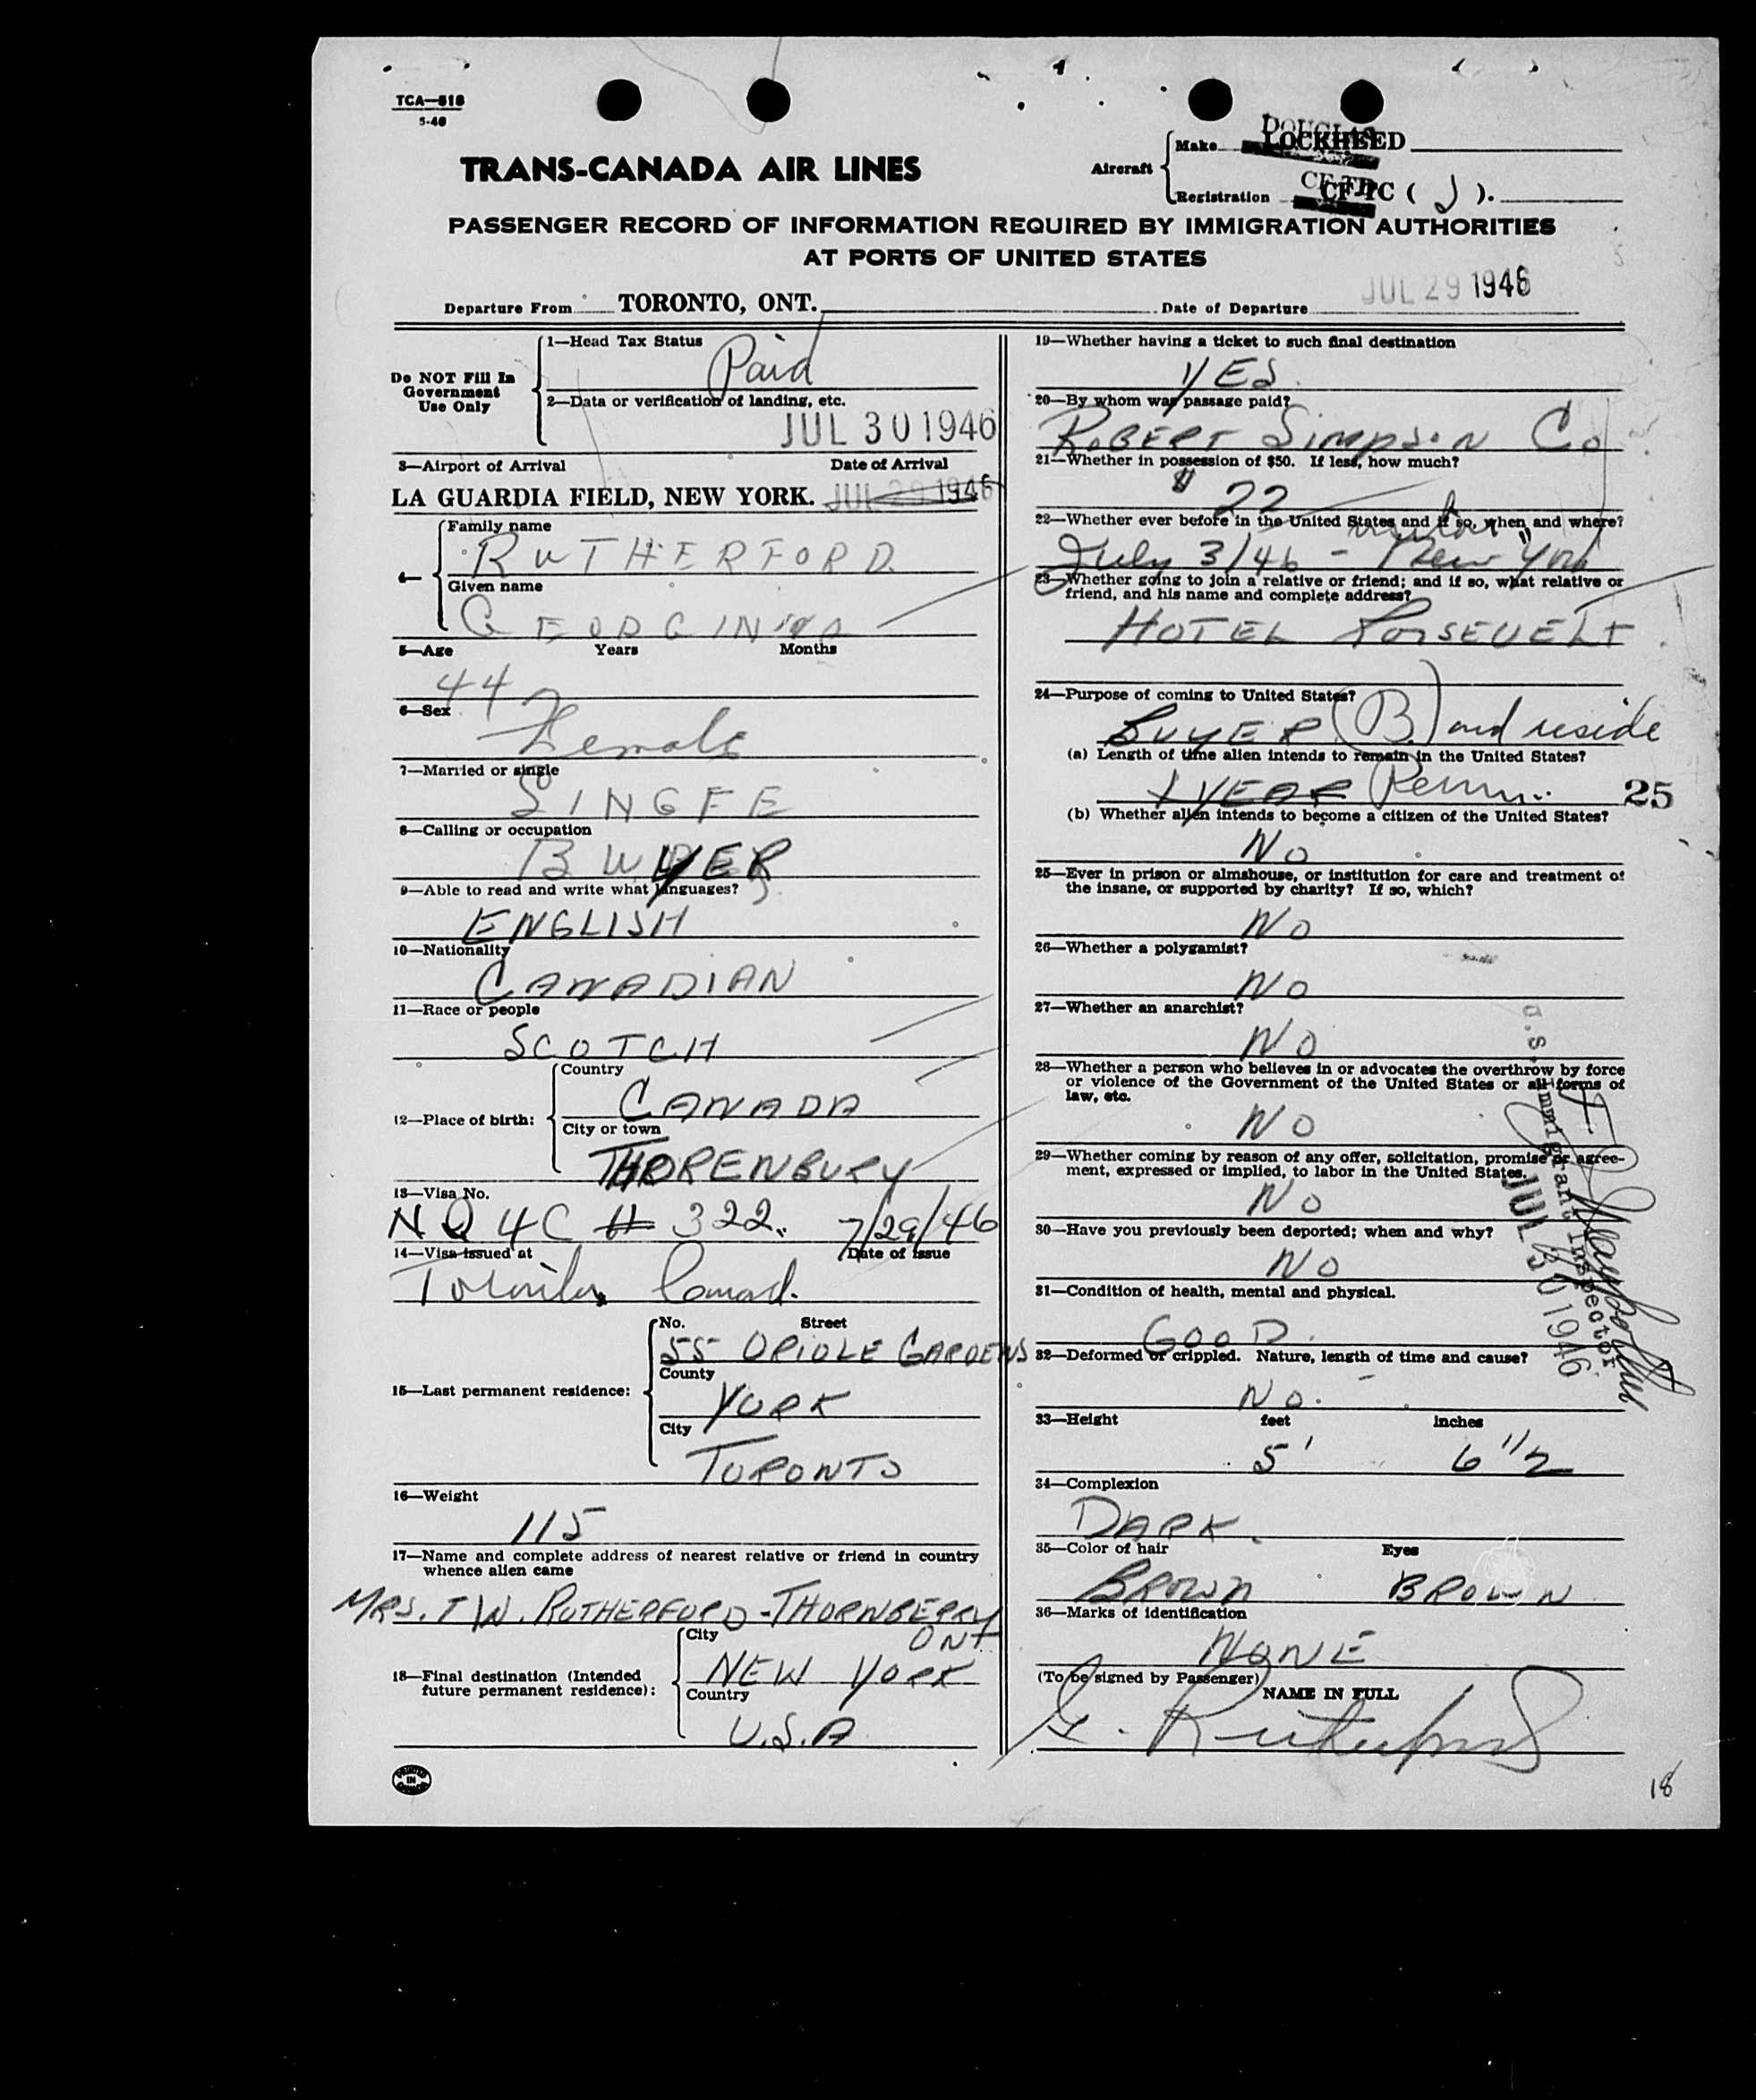 TCA—518
5-46
TRANS-CANADA AIR LINES
Aircraft
Make LOCKHEED
Registration CF-TC ( J ).
PASSENGER RECORD OF INFORMATION REQUIRED BY IMMIGRATION AUTHORITIES
AT PORTS OF UNITED STATES
Departure From TORONTO, ONT. Date of Departure JUL 29 1946
Do NOT Fill In
Government
Use Only
1—Head Tax Status
Paid
2—Data or verification of landing, etc.
JUL 30 1946
3—Airport of Arrival Date of Arrival
LA GUARDIA FIELD, NEW YORK. JUL 29 1946
4—
Family name
RUTHERFORD
Given name
GEORGINA
5—Age Years Months
44
6—Sex
Female
7—Married or single
SINGLE
8—Calling or occupation
BUYER
9—Able to read and write what languages?
ENGLISH
10—Nationality
CANADIAN
11—Race or people
SCOTCH
12—Place of birth:
Country
CANADA
City or town
THORENBURY
13—Visa No.
NQ 4C # 322. 7/29/46
14—Visa issued at Date of issue
Toronto, Canad.
15—Last permanent residence:
No. Street
55 ORIOLE GARDENS
County
YORK
City
TORONTO
16—Weight
115
17—Name and complete address of nearest relative or friend in country
whence alien came
MRS. T W. RUTHERFORD - THORNBERRY
ONT
18—Final destination (Intended
future permanent residence):
City
NEW YORK
Country
U.S.A
PRINTED IN CANADA
19—Whether having a ticket to such final destination
YES
20—By whom was passage paid?
ROBERT SIMPSON Co
21—Whether in possession of $50. If less, how much?
$ 22
22—Whether ever before in the United States and if so, when and where?
July 3/46 - New York
23—Whether going to join a relative or friend; and if so, what relative or
friend, and his name and complete address?
HOTEL ROOSEVELT
24—Purpose of coming to United States?
BUYER (B.) and reside
(a) Length of time alien intends to remain in the United States?
1 YEAR Perm.
25
(b) Whether alien intends to become a citizen of the United States?
No
25—Ever in prison or almshouse, or institution for care and treatment of
the insane, or supported by charity? If so, which?
No
26—Whether a polygamist?
No
27—Whether an anarchist?
No
28—Whether a person who believes in or advocates the overthrow by force
or violence of the Government of the United States or all forms of
law, etc.
No
29—Whether coming by reason of any offer, solicitation, promise or agree-
ment, expressed or implied, to labor in the United States.
No
30—Have you previously been deported; when and why?
No
31—Condition of health, mental and physical.
GOOD.
32—Deformed or crippled. Nature, length of time and cause?
No.
U.S. Immigrant Inspector
JUL 30 1946
33—Height feet inches
5' 6 1/2
34—Complexion
DARK.
35—Color of hair Eyes
BROWN BROWN
36—Marks of identification
NONE
(To be signed by Passenger)
NAME IN FULL
G. Rutherford
18